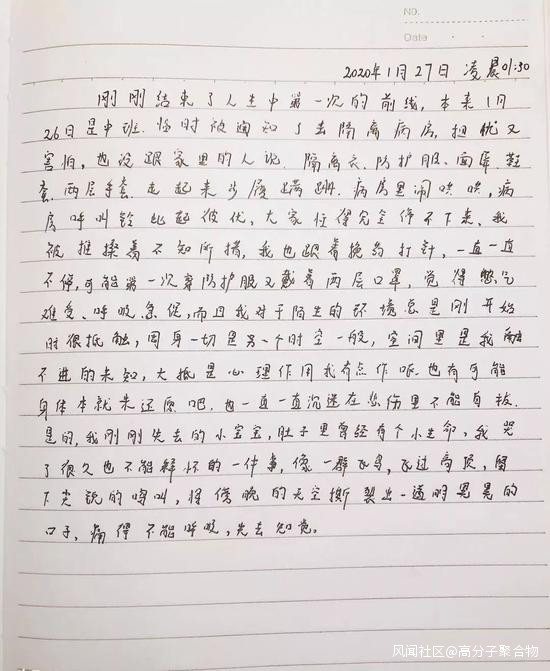 NO.
Date
2020年1月27日 凌晨01:30
刚刚结束了人生中第一次的前线,本来1月
26日是中班.临时被通知了去隔离病房,担忧又
害怕,也没跟家里的人说.隔离衣.防护服.面屏.鞋
套.两层手套.走起来步履蹒跚.病房里闹哄哄,病
房呼叫铃此起彼伏,大家忙得完全停不下来.我
被推搡着不知所措,我也跟着换药打针,一直一直
不停,可能第一次穿防护服又戴着两层口罩,觉得憋气
难受、呼吸急促,而且我对于陌生的环境总是刚开始
时很抵触,周身一切是另一个时空一般,空间里是我融
不进的未知,大抵是心理作用我有点作呕.也有可能
身体本就未还原吧.也一直一直沉迷在悲伤里不能自拔.
是的,我刚刚失去的小宝宝,肚子里曾经有个小生命,我哭
了很久也不能释怀的一件事,像一群飞鸟,飞过高顶,留
下尖锐的鸣叫,将傍晚的天空撕裂出一透明晃晃的
口子,痛得不能呼吸,失去知觉。
风闻社区@高分子聚合物